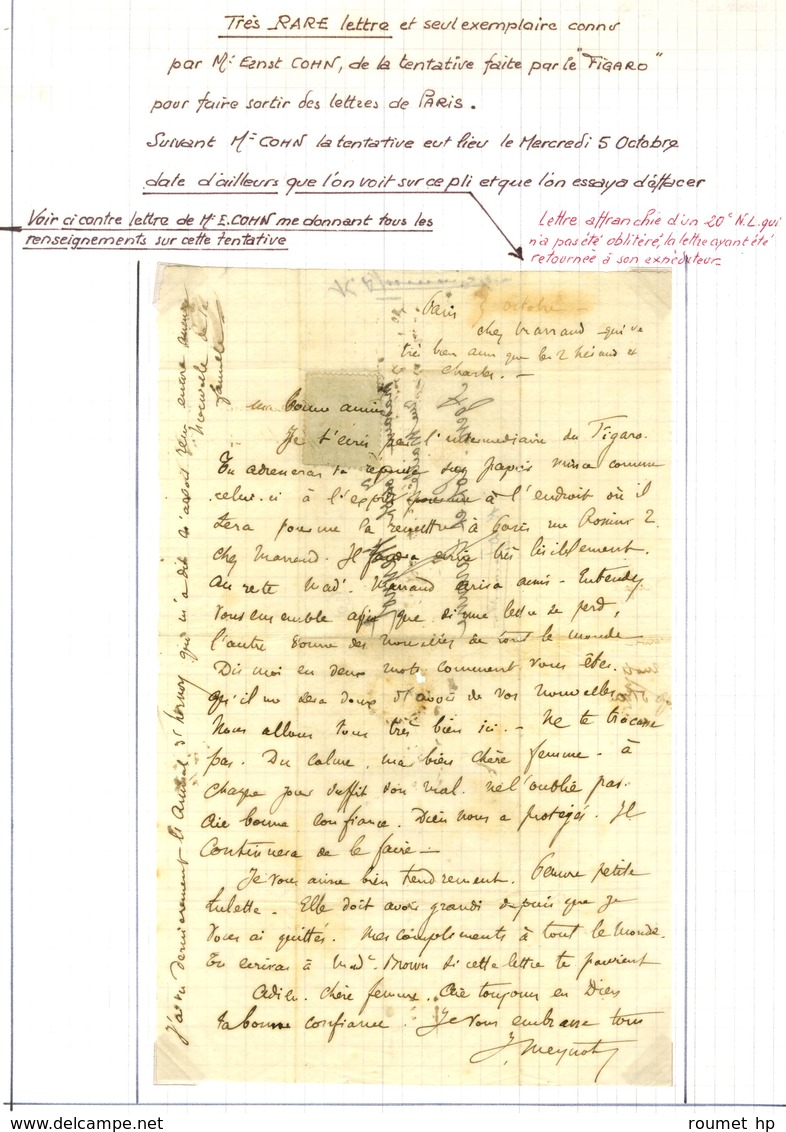 Très RARE lettre et seul exemplaire connu
par Mr Ernst COHN, de la tentative faite par le "FIGARO"
pour faire sortir des lettres de PARIS.
Suivant Mr COHN la tentative eut lieu le Mercredi 5 Octobre
date d'ailleurs que l'on voit sur ce pli et que l'on essaya d'effacer
Voir ci contre lettre de Mr E.COHN me donnant tous les
renseignements sur cette tentative
Lettre affranchie d'un 20c N.L. qui
n'a pas été oblitéré, la lettre ayant été
retournée à son expéditeur
Paris 5 octobre
chez Marrand
très bien ainsi que les 2
Charles. —
ma bonne amie
Je t'écris par l'intermédiaire du Figaro.
Tu adresseras ta réponse sur papier mince comme
celui-ci à l'endroit où il
sera pour me la remettre à Paris rue Rossini 2
chez Marrand. Il faudra écrire très lisiblement.
Au reste Made Marrand
vous ensemble afin que si une lettre se perd,
l'autre donne des nouvelles de tout le monde
Dis moi en deux mots comment vous êtes.
qu'il me sera doux d'avoir de vos nouvelles
Nous allons tous très bien ici. — Ne te tracasse
pas. Du calme, ma bien chère femme - à
chaque jour suffit son mal. ne l'oublie pas.
Aie bonne confiance. Dieu nous a protégés. Il
continuera de le faire —
Je vous aime bien tendrement. Pauvre petite
Elle doit avoir grandi depuis que je
vous ai quittés. Mes compliments à tout le monde.
Tu écriras à Made Brown si cette lettre te parvient
Adieu. chère femme. Aie toujours en Dieu
ta bonne confiance. Je vous embrasse tous
J. Meynot
J'ai vu dernièrement qui m'a dit n'avoir reçu encore aucune
nouvelle de sa
famille
roumet hp